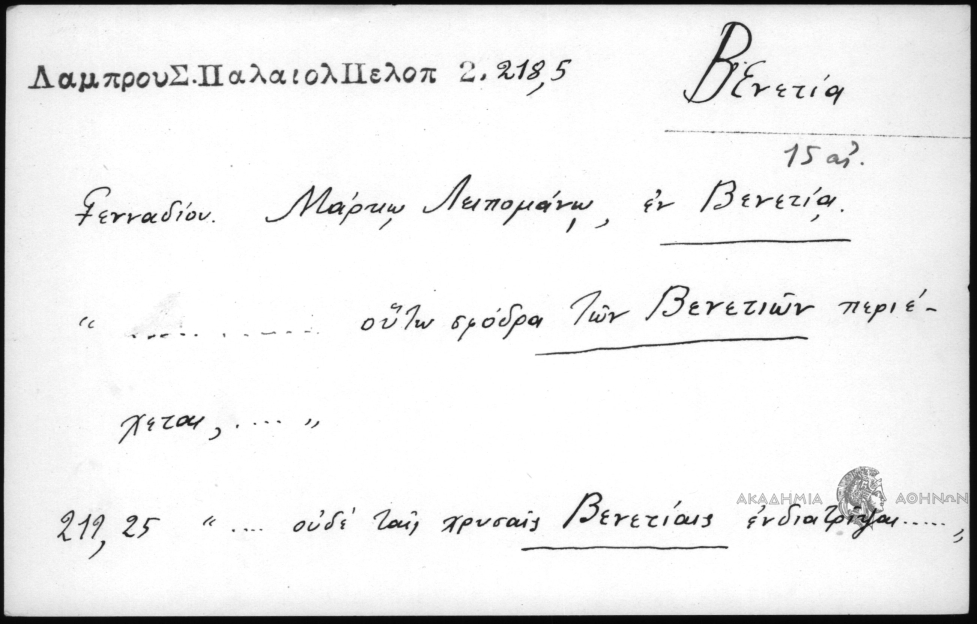 ΛαμπρουΣ.ΠαλαιολΠελοπ 2. 218,5
Βενετία
15 αἰ.
Γενναδίου. Μάρκῳ Λιπομάνῳ, ἐν Βενετίᾳ.
“ ............ οὕτω σφόδρα τῶν Βενετιῶν περιέ-
χεται, .... „
ΑΚΑΔΗΜΙΑ ΑΘΗΝΩΝ
219, 25 “ .... οὐδέ ταῖς χρυσαῖς Βενετίαις ἐνδιατρίψαι ....., „